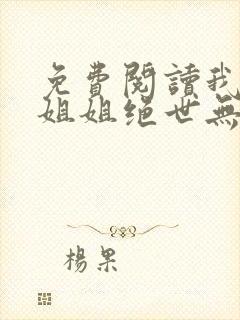 免費閱讀我
姐姐絕世無
楊果